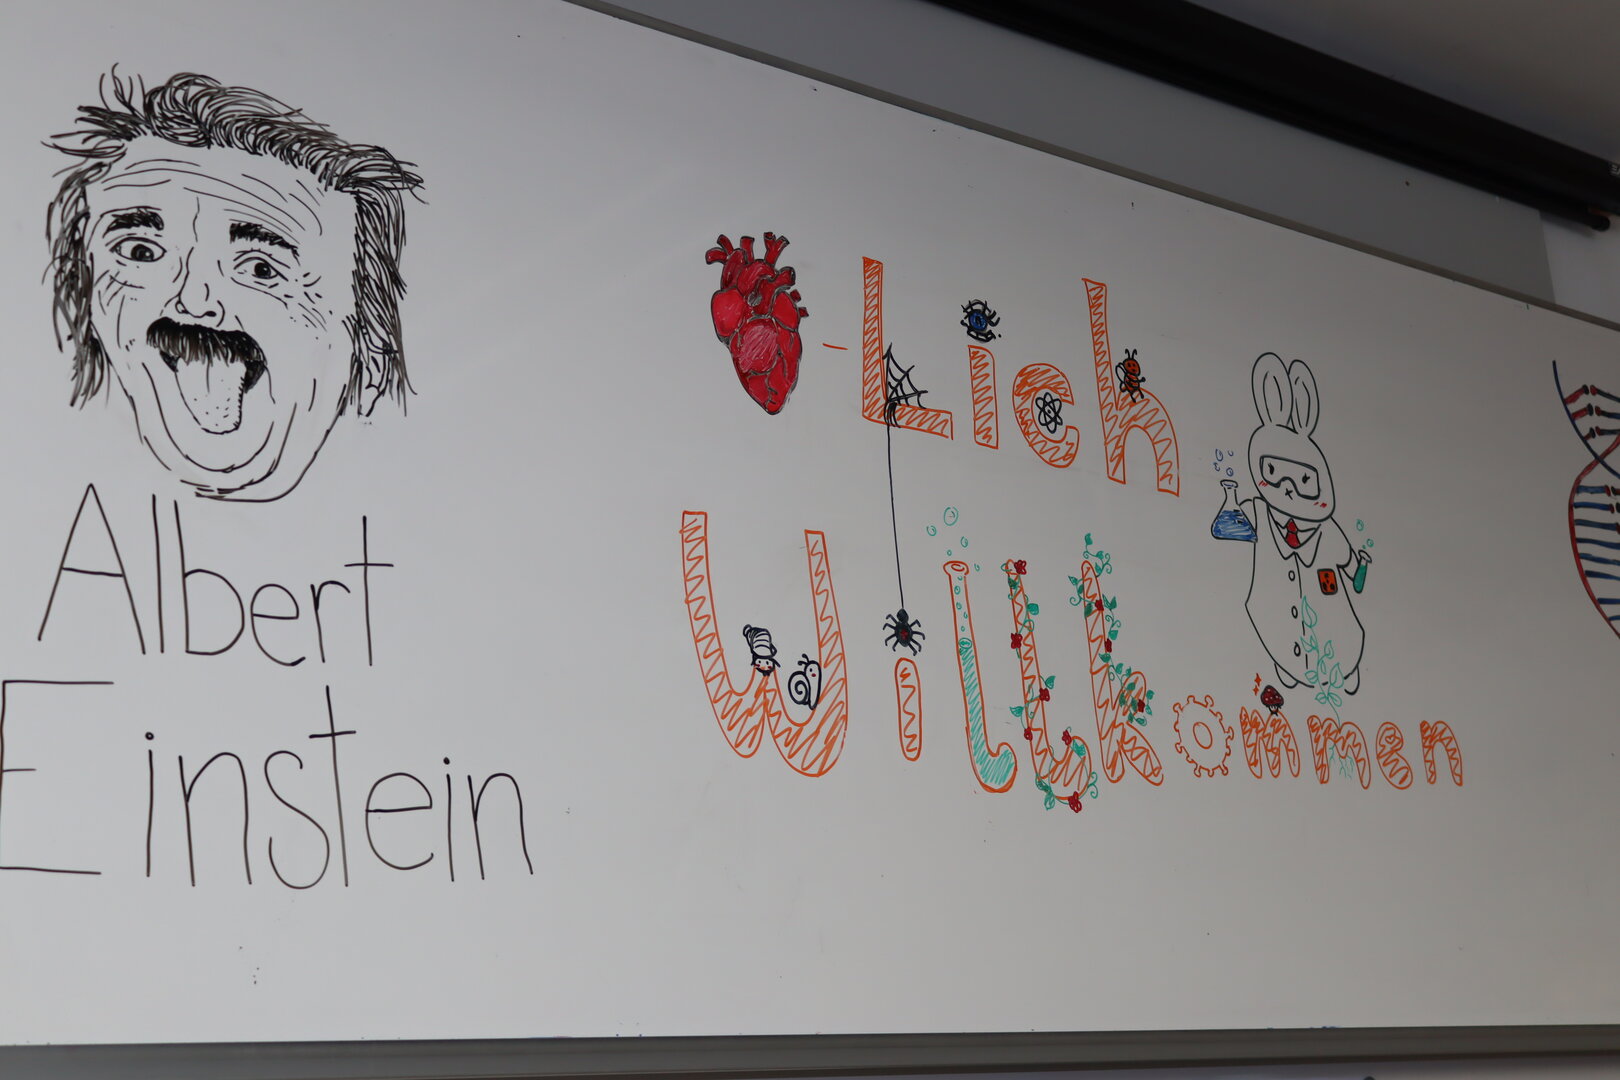 Albert
Einstein
-Lich
Willkommen